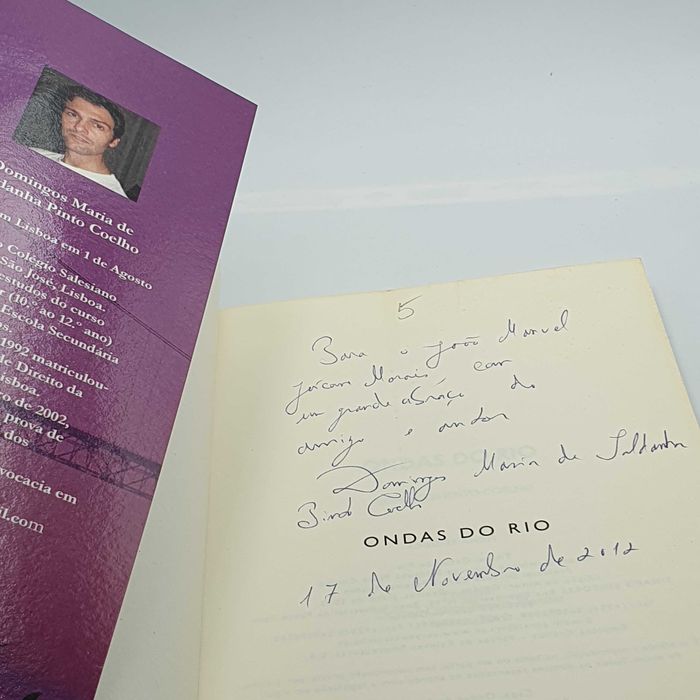 Domingos Maria de
danha Pinto Coelho
m Lisboa em 1 de Agosto
Colégio Salesiano
São José, Lisboa.
estudos do curso
(10.º ao 12.º ano)
Escola Secundária
1992 matriculou-
de Direito da
isboa.
o de 2002,
prova de
dos
vocacia em
il.com
5
Para o João Manuel
Morais, com
um grande abraço do
amigo e autor
Domingos Maria de Saldanha
Pinto Coelho
ONDAS DO RIO
17 de Novembro de 2012